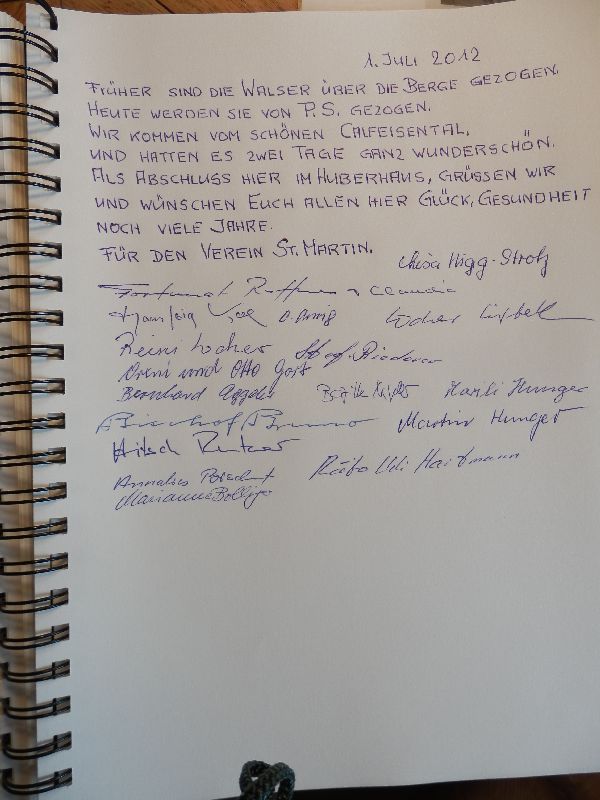 1. JULI 2012
FRÜHER SIND DIE WALSER ÜBER DIE BERGE GEZOGEN.
HEUTE WERDEN SIE VON P.S. GEZOGEN.
WIR KOMMEN VOM SCHÖNEN CALFEISENTAL,
UND HATTEN ES ZWEI TAGE GANZ WUNDERSCHÖN.
ALS ABSCHLUSS HIER IM HUBERHAUS, GRÜSSEN WIR
UND WÜNSCHEN EUCH ALLEN HIER GLÜCK, GESUNDHEIT
NOCH VIELE JAHRE.
FÜR DEN VEREIN ST. MARTIN.
Higg-Strolz
Fortunat Claudia
Locher
Reini Locher
Vreni und Otto Gort
Bernhard Aggeler Hunger
Bischof Bruno Martin Hunger
Annalies
Marianne Uli Hartmann